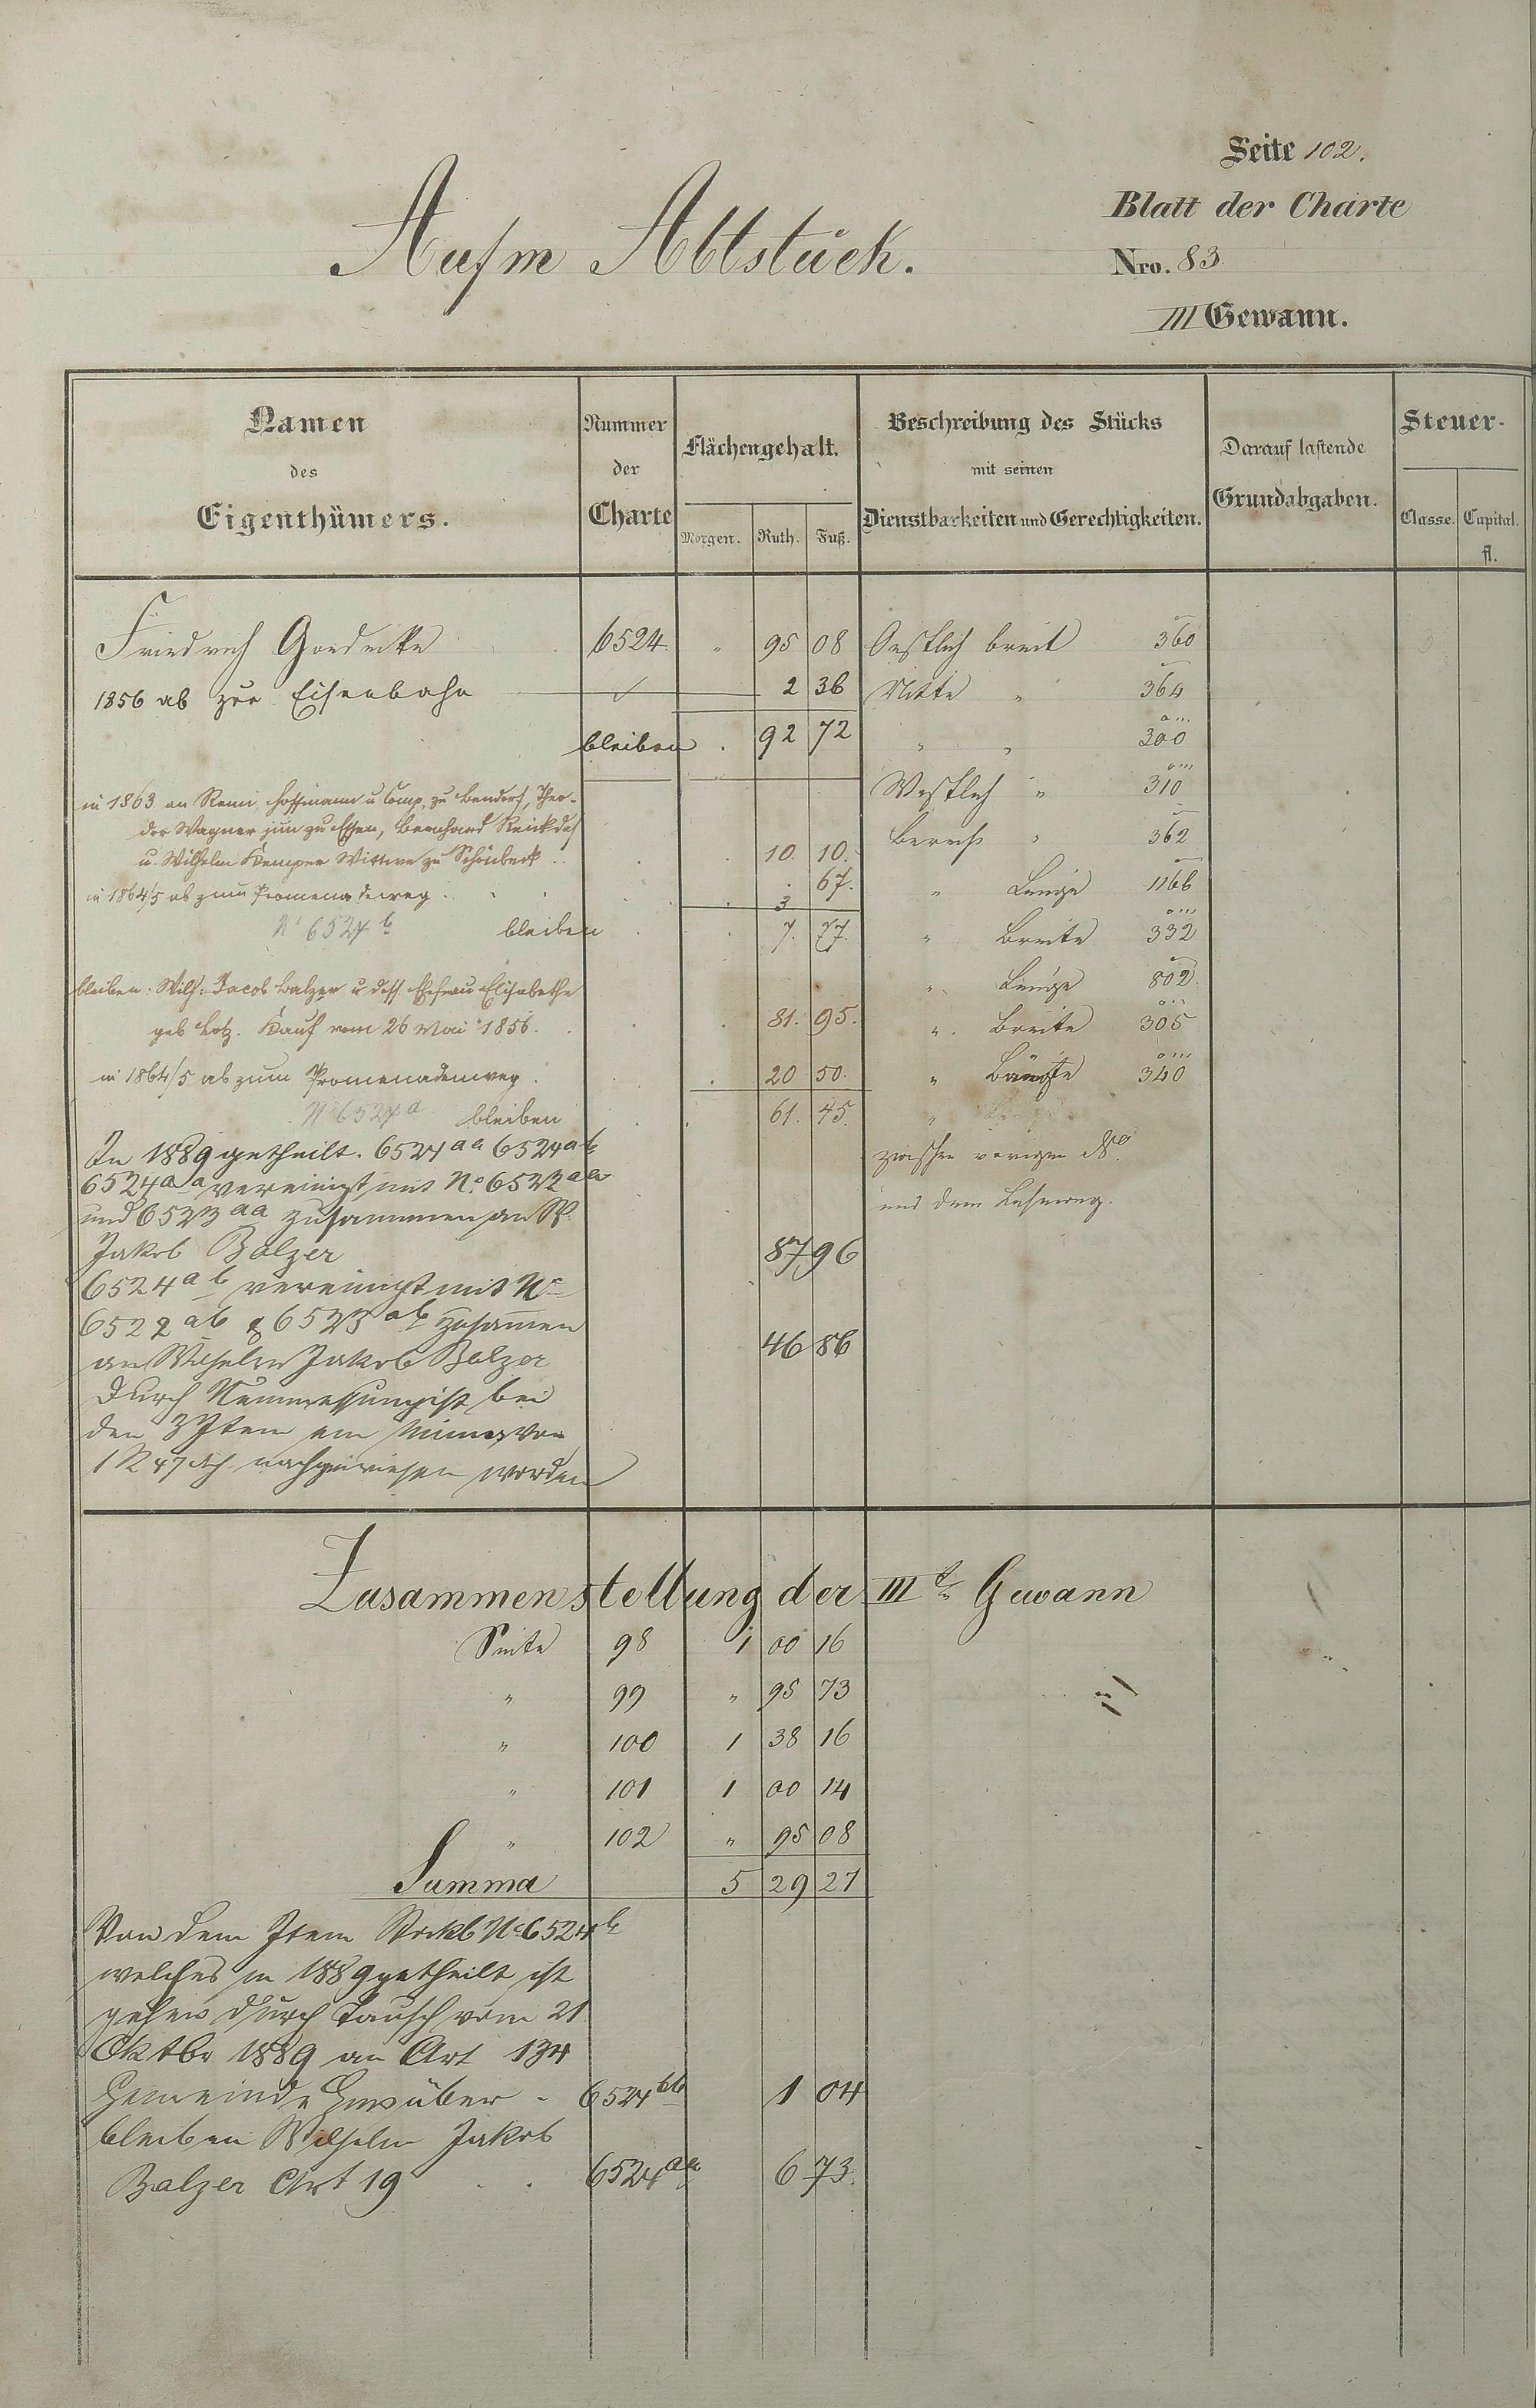 Seite 102.
Aufm Abtstück.
Blatt der Charte
Nro. 83
III Gewann.
Namen des Eigenthümers.
Nummer der Charte
Flächengehalt.
Morgen. Ruth. Fuß.
Beschreibung des Stücks mit seinen Dienstbarkeiten und Gerechtigkeiten.
Darauf lastende Grundabgaben.
Steuer-
Classe. Capital. fl.
Friedrich Goedecke 6524 " 95 08 Oestlich breit 360
1856 ab zur Eisenbahn 2 36 Mitte " 364
bleiben . 92 72 " " 300
Westlich " 310
in 1863 an Remi, Hoffmann u Comp. zu Bendorf, Theo-
dor Wagner jun zu Essen, Bernhard
u. Wilhelm Kemper Wittwe zu Schönbeck 10. 10. " 362
in 1864/5 ab zum Promenadeweg 3 67. " Länge 1166
No 6524 b bleiben 7. 77. " Breite 332
" Länge 802
bleiben: Wilh: Jacob Balzer u dess Ehefrau Elisabetha
geb Lotz. Kauf vom 26 Mai 1856. 81. 95. " Breite 305
in 1864/5 ab zum Promenadenweg. 20 50. " 340
No 6524 a bleiben 61. 45. "
In 1889 getheilt. 6524 aa 6524 ab
6524 aa vereinigt mit No 6522 aa
und 6523 aa zusammen an W.
Jakob Balzer 87 96
6524 ab vereinigt mit No
6522 ab & 6523 ab zusammen
an Wilhelm Jakob Balzer 46 86
Durch Neumessung ist bei
den 3 Item ein Minus von
1 R 47 nachgewiesen worden
zwischen vorigem No
und dem
Zusammenstellung der IIItn Gewann
Seite 98 1 00 16
" 99 " 95 73
" 100 1 38 16
" 101 1 00 14
" 102 " 95 08
Summa 5 29 27
Von dem Item Stockb No 6524 b
welches in 1889 getheilt ist
gehen durch Tausch vom 21
Oktbr 1889 an Art 134
Gemeinde Ems über - 6524 bb 1 04
bleiben Wilhelm Jakob
Balzer Art 19 . . 6524 6 73.